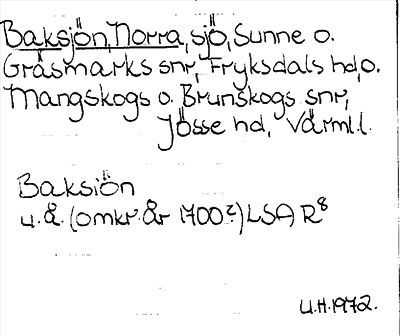 Baksjön, Norra, sjö, Sunne o.
Gräsmarks snr, Fryksdals hd, o.
Mangskogs o. Brunskogs snr,
Jösse hd, Värml.l.
Baksiön
u.å. (omkr. år 1700?) LSA R8
U.H. 1972.